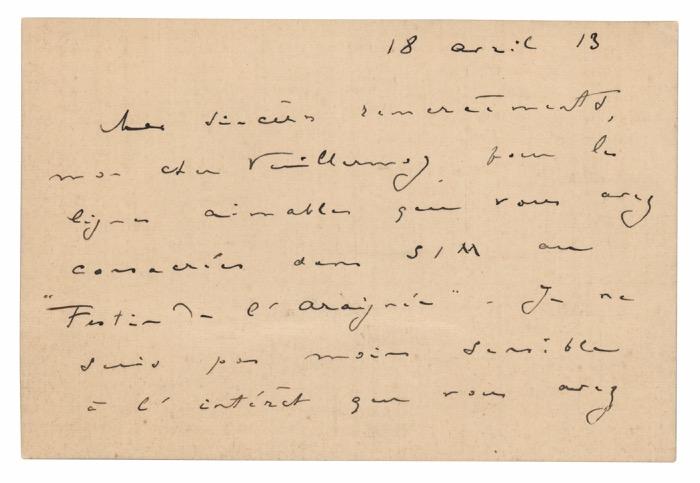 18 avril 13
Mes sincères remerciements,
mon cher Vuillermoz pour les
lignes aimables que vous avez
consacrées dans SIM au
"Festin de l'Araignée". Je ne
suis pas moins sensible
à l'intérêt que vous avez